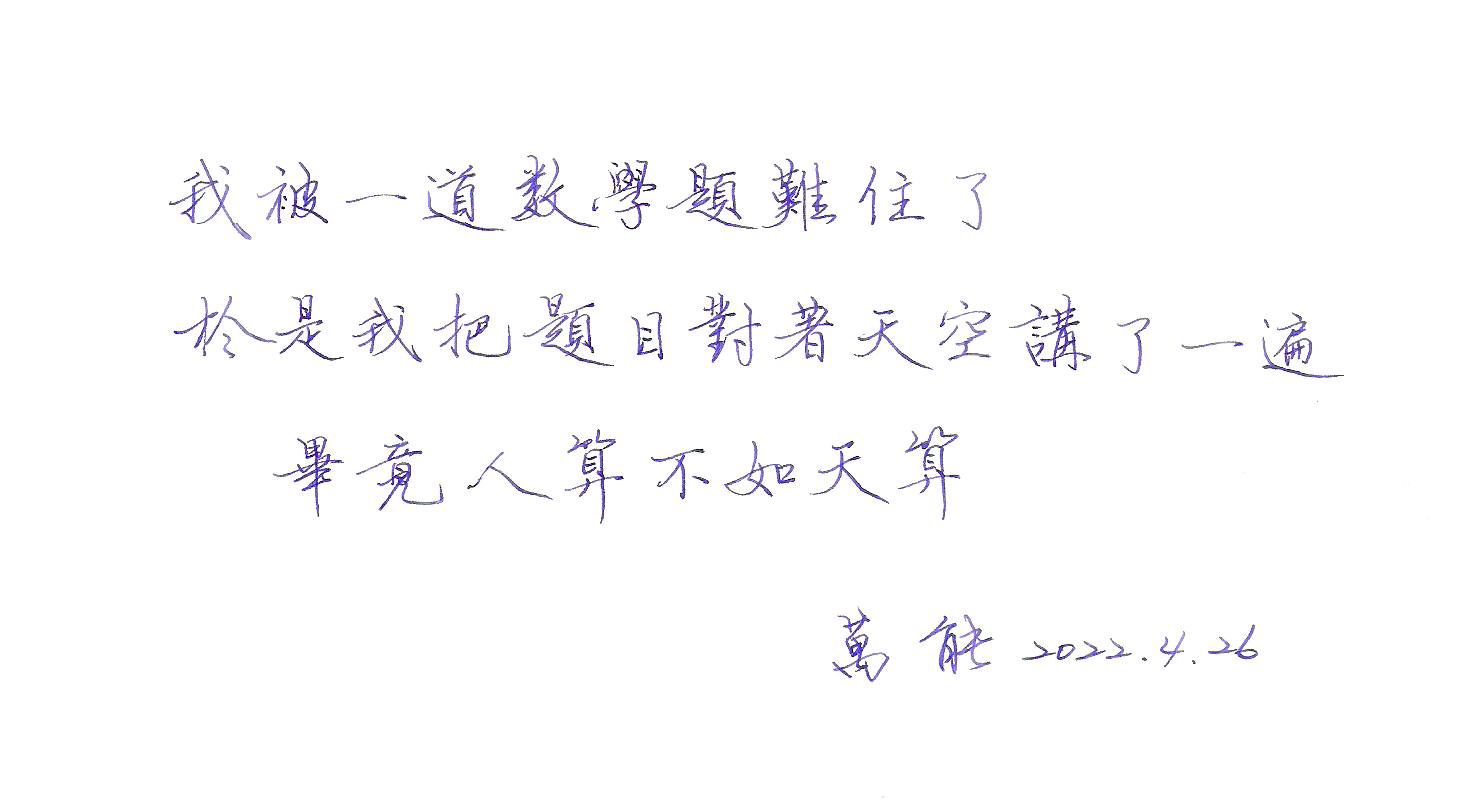 我被一道数學題難住了
於是我把題目對著天空講了一遍
畢竟人算不如天算
萬能 2022.4.26